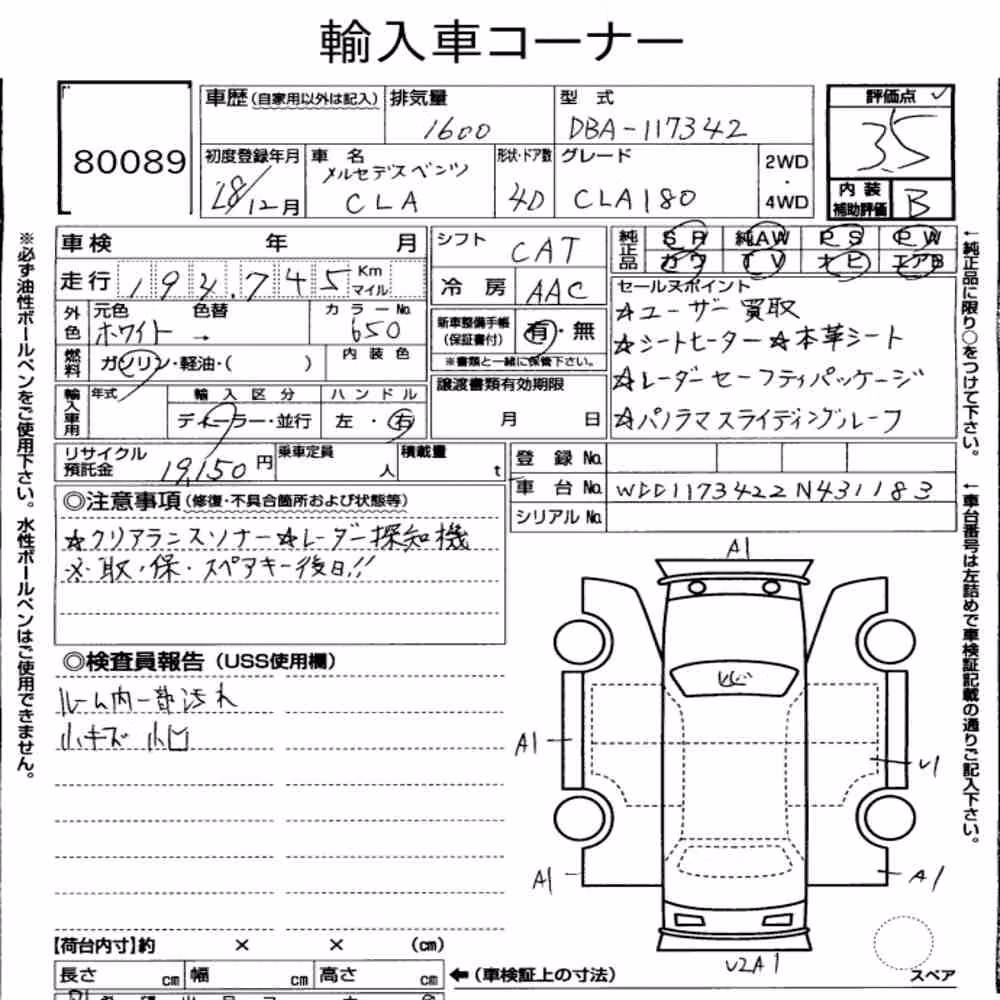 輸入車コーナー
80089
車歴(自家用以外は記入) 排気量 型式 評価点
1600 DBA-117342 3.5
初度登録年月 車名 形状・ドア数 グレード 2WD・4WD
28/12月 メルセデスベンツ CLA 4D CLA180
内装補助評価 B
※必ず油性ボールペンをご使用下さい。水性ボールペンはご使用できません。
車検 年 月 シフト CAT
純正品 SR 純AW PS PW
カワ TV ナビ エアB
走行 Km マイル
冷房 AAC
外色 元色 色替 カラーNo.
ホワイト → 650
新車整備手帳(保証書付) 有・無
※書類と一緒に保管下さい。
燃料 ガソリン・軽油・( ) 内装色
譲渡書類有効期限
月 日
輸入車用 年式 輸入区分 ハンドル
ディーラー・並行 左・右
セールスポイント
☆ユーザー買取
☆シートヒーター☆本革シート
☆レーダーセーフティパッケージ
☆パノラマスライディングルーフ
←純正品に限り○をつけて下さい。
リサイクル預託金 19,150円 乗車定員 人 積載量 t
登録No.
車台No. WDD1173422N431183
シリアルNo.
←車台番号は左詰めで車検証記載の通りご記入下さい。
◎注意事項(修復・不具合箇所および状態等)
☆クリアランスソナー☆レーダー探知機
※取・保・スペアキー後日!!
◎検査員報告(USS使用欄)
ルーム内一部汚れ
小キズ 小凹
A1
A1
U1
A1
A1
U2A1
スペア
【荷台内寸】約 × × (cm)
長さ cm 幅 cm 高さ cm ←(車検証上の寸法)